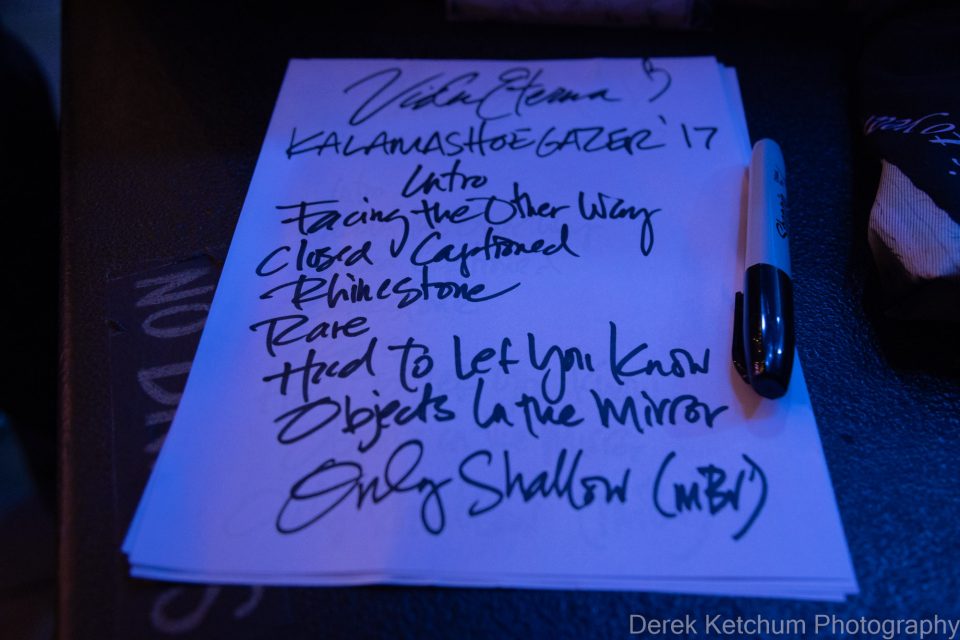 Vida Eterna
KALAMASHOEGAZER '17
Intro
Facing the Other Way
Closed Captioned
Rhinestone
Rare
Had to Let You Know
Objects In the Mirror
Only Shallow (mBv)
NO
Derek Ketchum Photography